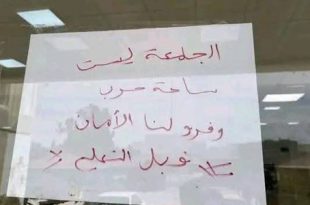 الجامعة ليست
ساحة حرب
وفرو لنا الأمان
لا نوبل التعليم لا